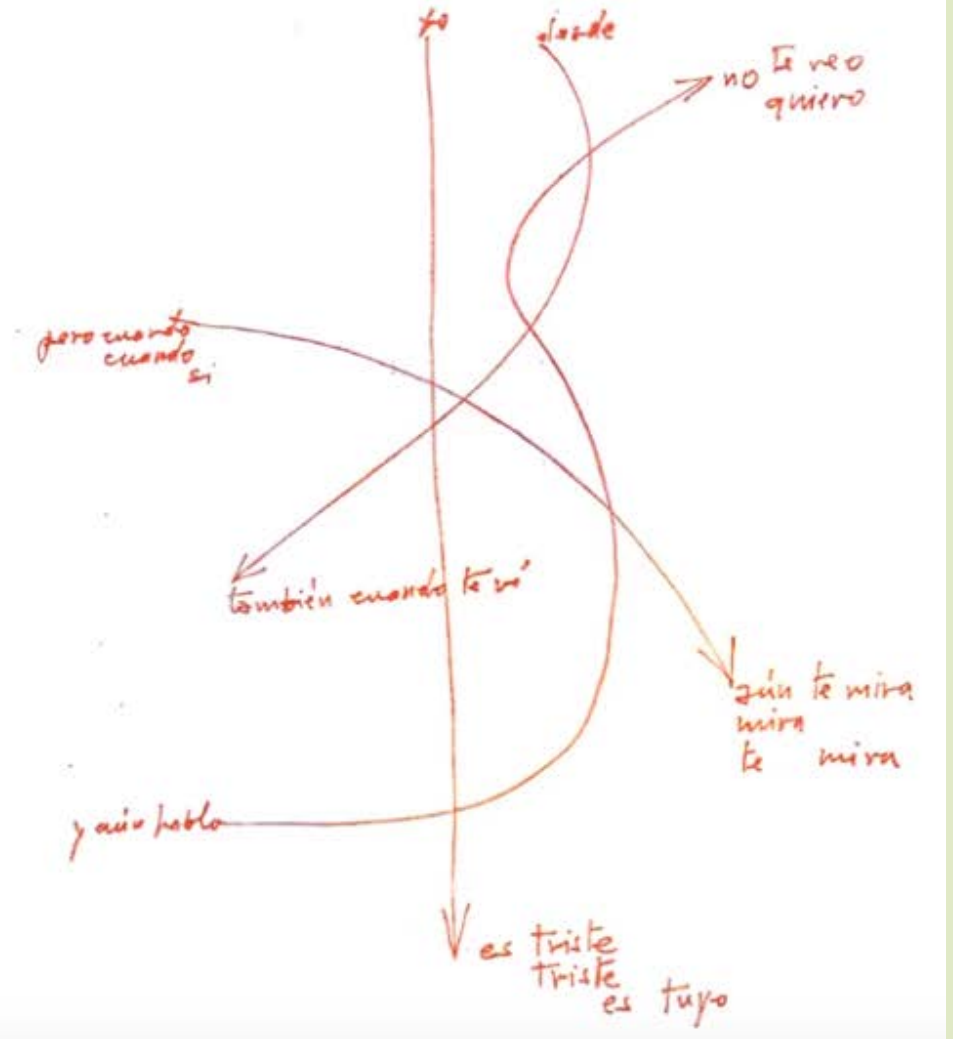 yo
desde
no te veo
quiero
pero cuando
cuando
si
también cuando te ví
aún te mira
mira
te mira
y aún hablo
es triste
triste
es tuyo